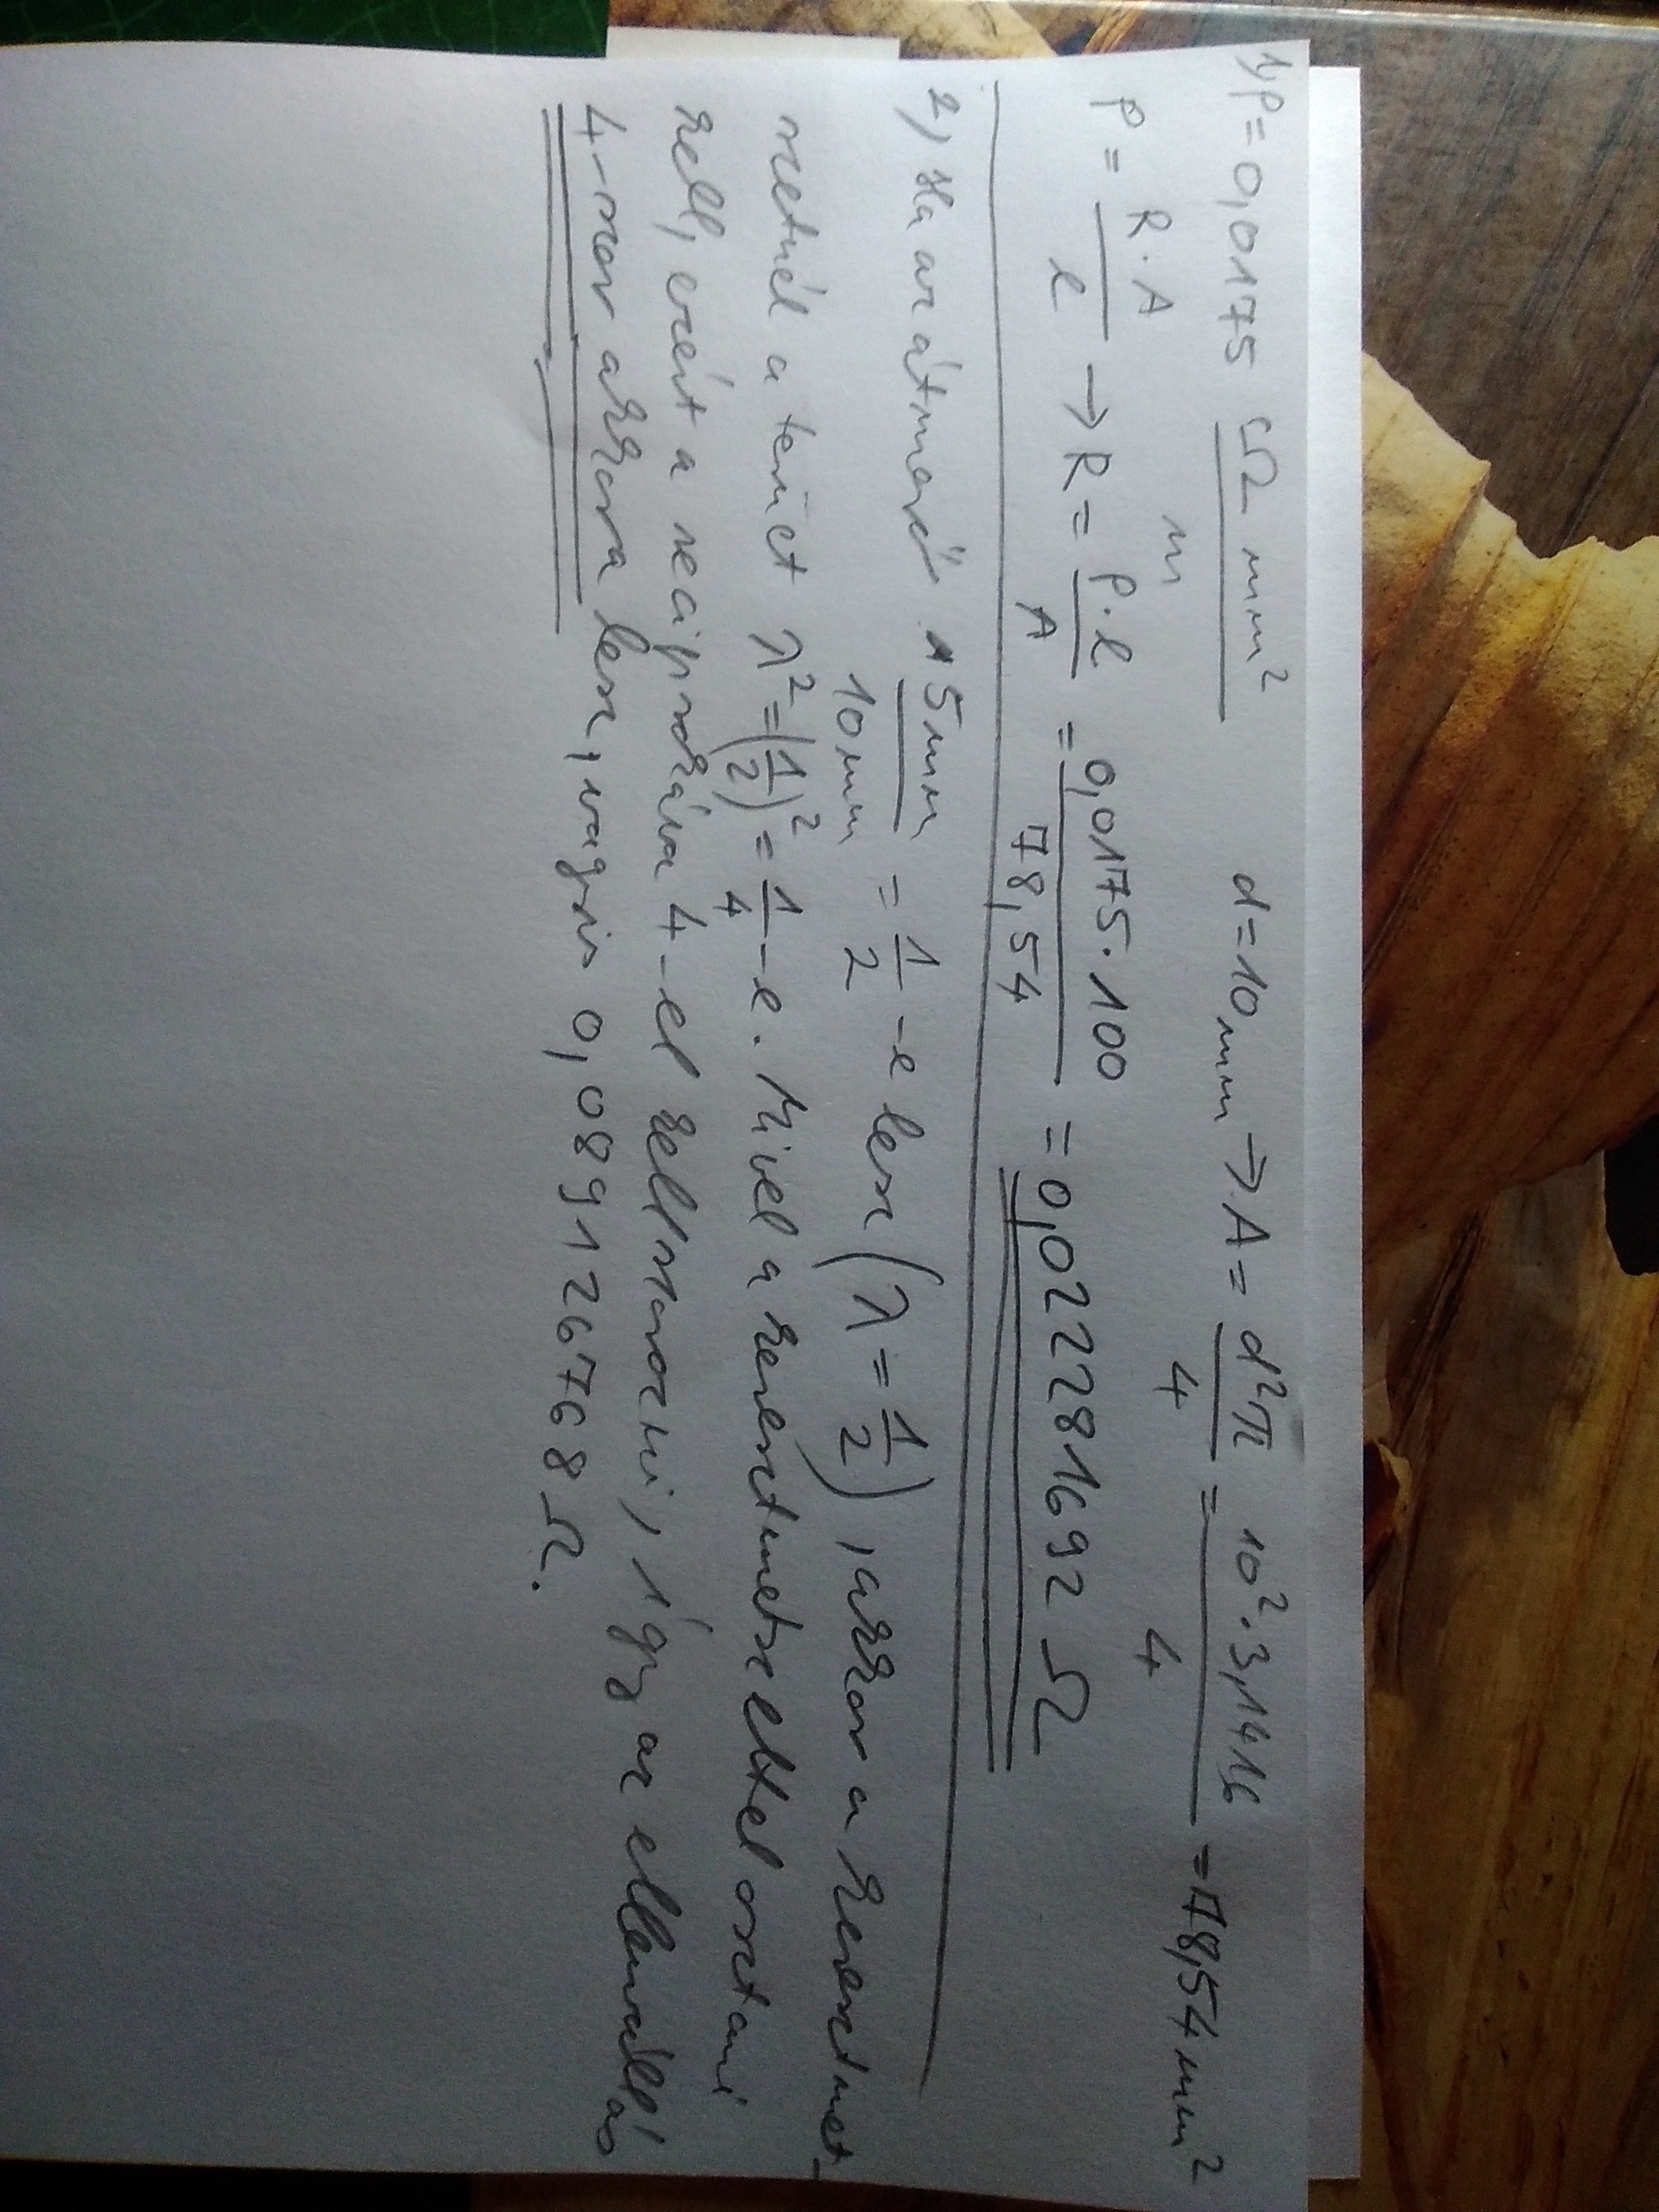 1, ρ=0,0175 Ω mm²/m d=10mm → A= d²π/4 = 10²·3,1416/4 =78,54mm²
ρ= R·A/l → R= ρ·l/A = 0,0175·100/78,54 =0,022281692 Ω
2, Ha az átmérő 5mm/10mm = 1/2 -e lesz (λ=1/2), akkor a keresztmet-
szetnél a terület λ²=(1/2)²=1/4-e. Mivel a keresztmetszettel osztani
kell, ezért a reciprokával 4-el kell szorozni, így az ellenállás
4-szer akkora lesz, vagyis 0,089126768 Ω.